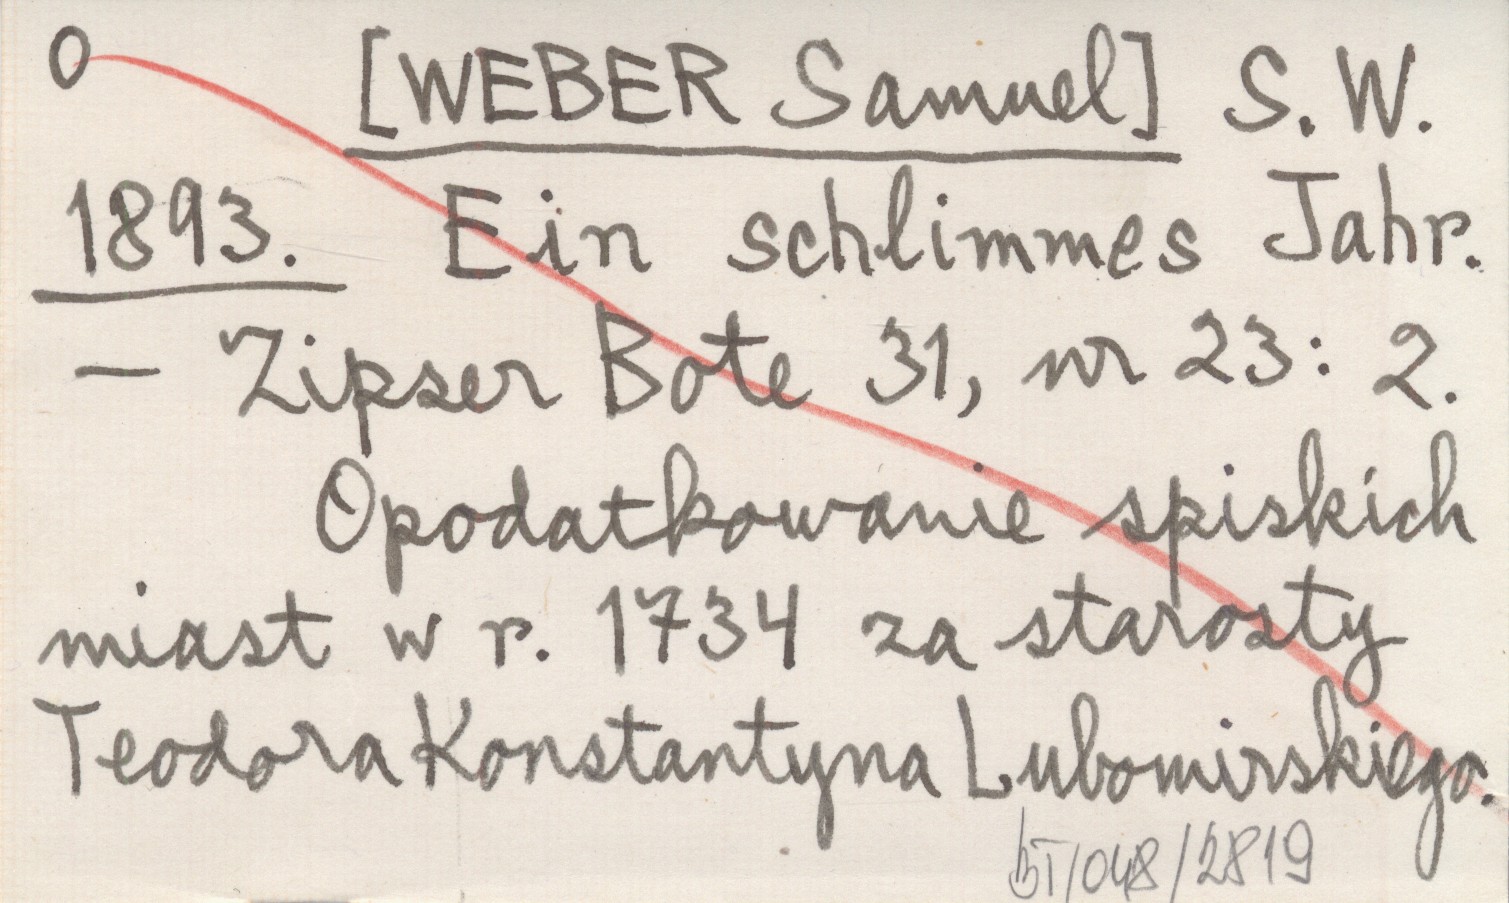 O [WEBER Samuel] S. W.
1893. Ein schlimmes Jahr.
– Zipser Bote 31, nr 23: 2.
Opodatkowanie spiskich
miast w r. 1734 za starosty
Teodora Konstantyna Lubomirskiego.
BT/048/2819